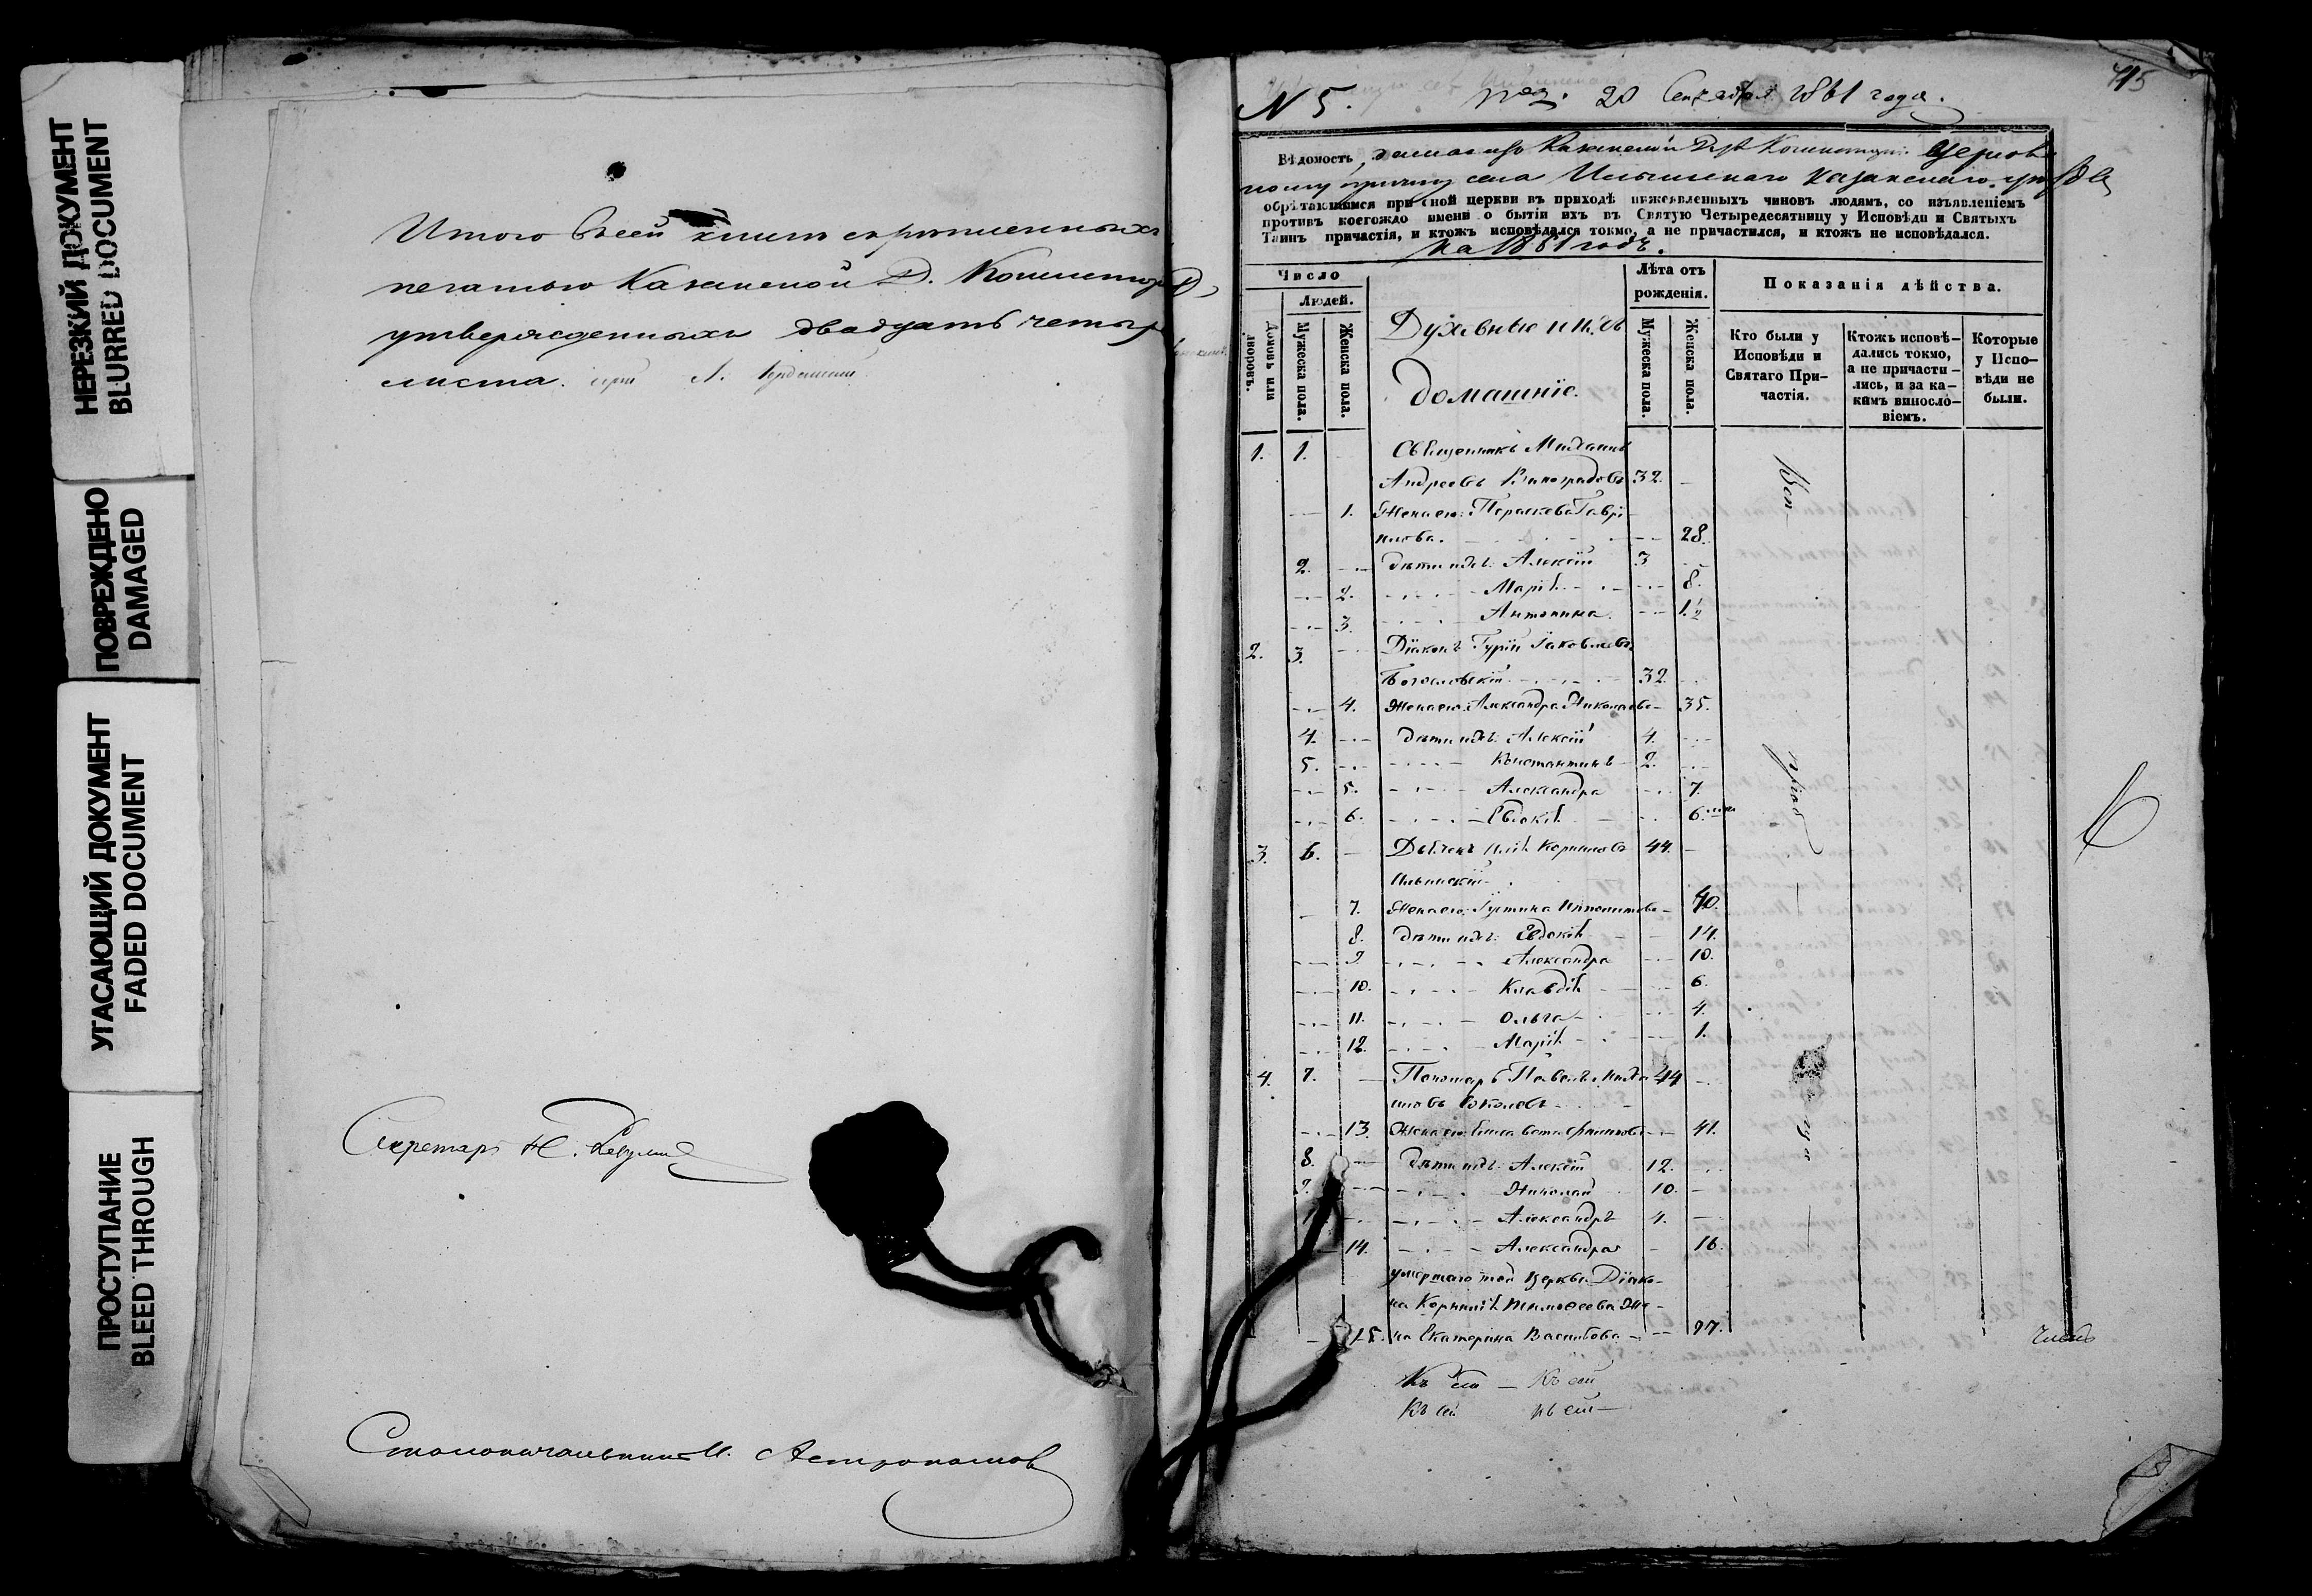 НЕРЕЗКИЙ ДОКУМЕНТ
BLURRED DOCUMENT
ПОВРЕЖДЕНО
DAMAGED
УГАСАЮЩИЙ ДОКУМЕНТ
FADED DOCUMENT
ПРОСТУПАНИЕ
BLEED THROUGH
Итого всей книги скрепленныхъ
печатью Казанской Д. Консистор
утвержденныхъ двадцать четыр
листа.
Секретарь Н.
Столоначальникъ И. Астрономов
N 5. 20 Сентября 1861 года.
Вѣдомость, данная изъ Казанской Дух Консистории Церков
ному причту села Ильинскаго Казанскаго уезда
обрѣтающимся при оной церкви въ приходѣ нижеявленныхъ чиновъ людямъ, со изъявленіемъ
противъ коегождо имени о бытіи ихъ въ Святую Четыредесятницу у Исповѣди и Святыхъ
Таинъ причастія, и ктожъ исповѣдался токмо, а не причастился, и ктожъ не исповѣдался.
На 1861 годъ.
Число
Людей.
Домовъ или дворовъ.
Мужеска пола.
Женска пола.
Духовные и ихъ
домашніе.
Лѣта отъ
рожденія.
Мужеска пола.
Женска пола.
Показанія дѣйства.
Кто были у
Исповѣди и
Святаго При-
частія.
Ктожъ исповѣ-
дались токмо,
а не причасти-
лись, и за ка-
кимъ винослo-
віемъ.
Которые
у Испо-
вѣди не
были.
1. 1. Священникъ Михаилъ
Андреевъ Виноградовъ 32.
1. Жена его Параскева Гаврі
илова. 28.
2. дети ихъ: Алексій 3
2. Марія 8.
3. Антонина 1 1/2
2. 3. Діаконъ Гурій Іаковлевъ
Богословскій 32
4. Жена его Александра Николаева 35.
4. дети ихъ: Алексій 4.
5. Константинъ 2.
5. Александра 7.
6. Евдокія 6.
3. 6. Дьячекъ Илія Корниловъ 44.
Ильинскій
7. Жена его Іустина Ипполитова 40.
8. дети ихъ: Евдокія 14.
9 Александра 10.
10. Клавдія 6.
11. Ольга 4.
12. Марія 1.
4. 7. Пономарь Павелъ Миха 44
иловъ Соколовъ
13. Жена его Елисавета Филипова 41.
8. дети ихъ: Алексій 12.
9. Николай 10.
Александръ 4.
14. Александра 16.
умершаго той Церкви Діако-
на Корнилія Тимофеева Же-
15. на Екатерина Васильева
Число